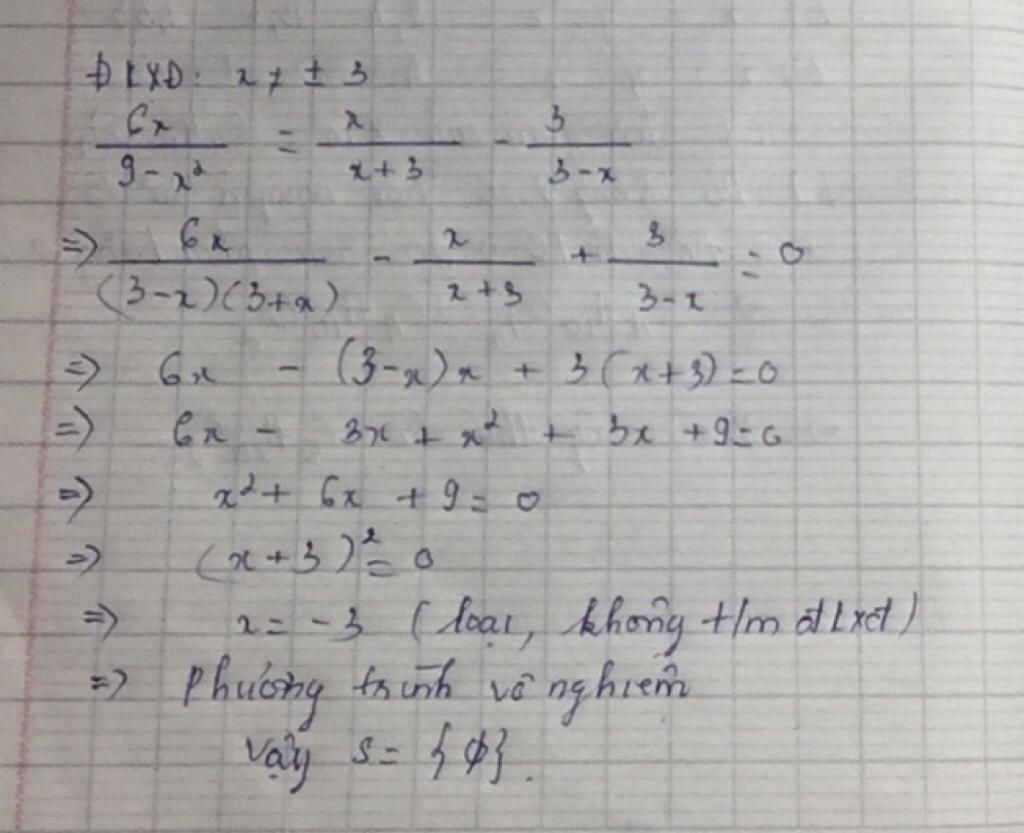 ĐKXĐ: x ≠ ± 3
6x / (9 - x²) = x / (x + 3) - 3 / (3 - x)
=> 6x / ((3 - x)(3 + x)) - x / (x + 3) + 3 / (3 - x) = 0
=> 6x - (3 - x)x + 3(x + 3) = 0
=> 6x - 3x + x² + 3x + 9 = 0
=> x² + 6x + 9 = 0
=> (x + 3)² = 0
=> x = -3 (loại, không t/m đkxđ)
=> Phương trình vô nghiệm
Vậy S = {∅}.